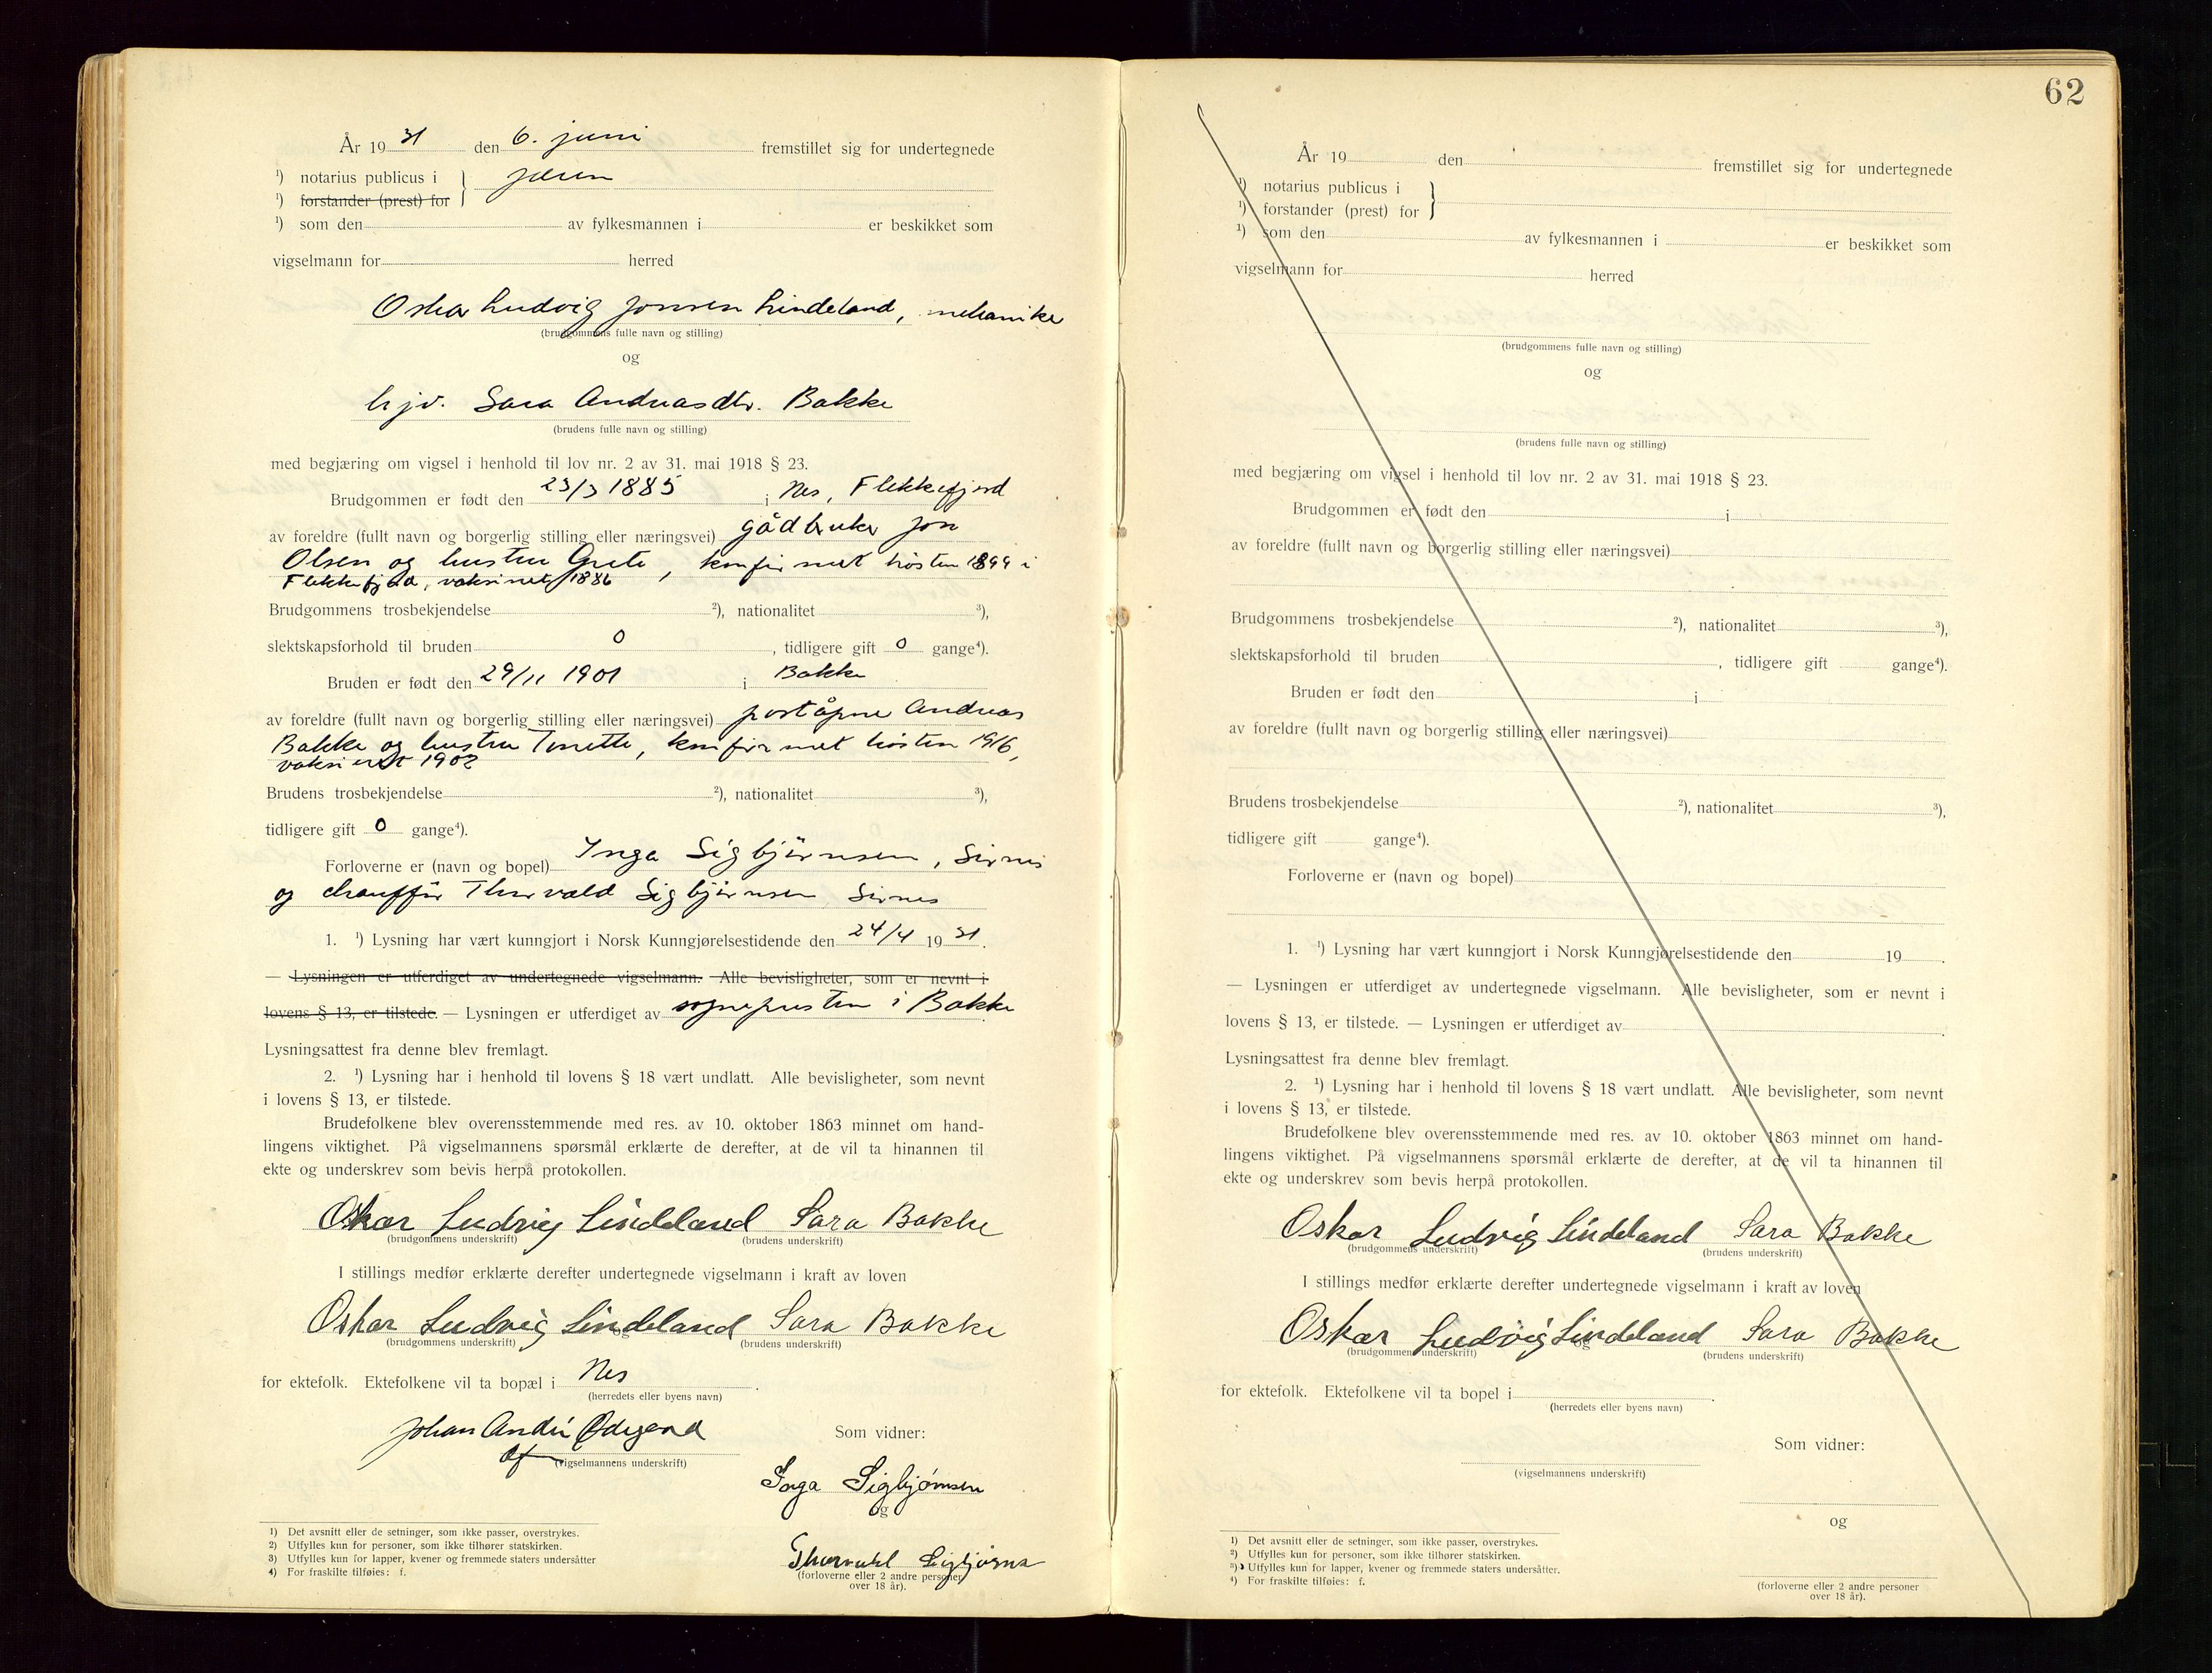 År 19 31 den 6. juni fremstillet sig for undertegnede
¹) notarius publicus i } Jæren
¹) forstander (prest) for
¹) som den av fylkesmannen i er beskikket som
vigselmann for herred
Oskar Ludvig Jonsen Lindeland, mekaniker
(brudgommens fulle navn og stilling)
og
hjv. Sara Andreasdtr. Bakke
(brudens fulle navn og stilling)
med begjæring om vigsel i henhold til lov nr. 2 av 31. mai 1918 § 23.
Brudgommen er født den 23/3 1885 i Nes, Flekkefjord
av foreldre (fullt navn og borgerlig stilling eller næringsvei) gådbruker Jon
Olsen og hustru Grete, konfirmert høsten 1899 i
Flekkefjord, vaksinert 1886
Brudgommens trosbekjendelse ²), nationalitet ³),
slektskapsforhold til bruden 0, tidligere gift 0 gange⁴).
Bruden er født den 29/11 1901 i Bakke
av foreldre (fullt navn og borgerlig stilling eller næringsvei) poståpner Andreas
Bakke og hustru Tonette, konfirmert høsten 1916,
vaksinert 1902
Brudens trosbekjendelse ²), nationalitet ³),
tidligere gift 0 gange⁴).
Forloverne er (navn og bopel) Inga Sigbjørnsen, Sirnes
og chauffør Thorvald Sigbjørnsen Sirnes
1. ¹) Lysning har vært kunngjort i Norsk Kunngjørelsestidende den 24/4 19 31.
— Lysningen er utferdiget av undertegnede vigselmann. Alle bevisligheter, som er nevnt i
lovens § 13, er tilstede. — Lysningen er utferdiget av sognepresten i Bakke
Lysningsattest fra denne blev fremlagt.
2. ¹) Lysning har i henhold til lovens § 18 vært undlatt. Alle bevisligheter, som nevnt
i lovens § 13, er tilstede.
Brudefolkene blev overensstemmende med res. av 10. oktober 1863 minnet om hand-
lingens viktighet. På vigselmannens spørsmål erklærte de derefter, at de vil ta hinannen til
ekte og underskrev som bevis herpå protokollen.
Oskar Ludvig Lindeland Sara Bakke
(brudgommens underskrift) (brudens underskrift)
I stillings medfør erklærte derefter undertegnede vigselmann i kraft av loven
Oskar Ludvig Lindeland Sara Bakke
(brudgommens underskrift) (brudens underskrift)
for ektefolk. Ektefolkene vil ta bopæl i Nes.
(herredets eller byens navn)
Johan André Ødegaard
(vigselmannens underskrift)
Som vidner:
Inga Sigbjørnsen
og
Thorvald Sigbjørns
(forloverne eller 2 andre personer
over 18 år).
1) Det avsnitt eller de setninger, som ikke passer, overstrykes.
2) Utfylles kun for personer, som ikke tilhører statskirken.
3) Utfylles kun for lapper, kvener og fremmede staters undersåtter
4) For fraskilte tilføies: f.
62
År 19 den fremstillet sig for undertegnede
¹) notarius publicus i }
¹) forstander (prest) for
¹) som den av fylkesmannen i er beskikket som
vigselmann for herred
(brudgommens fulle navn og stilling)
og
(brudens fulle navn og stilling)
med begjæring om vigsel i henhold til lov nr. 2 av 31. mai 1918 § 23.
Brudgommen er født den i
av foreldre (fullt navn og borgerlig stilling eller næringsvei)
Brudgommens trosbekjendelse ²), nationalitet ³),
slektskapsforhold til bruden, tidligere gift gange⁴).
Bruden er født den i
av foreldre (fullt navn og borgerlig stilling eller næringsvei)
Brudens trosbekjendelse ²), nationalitet ³),
tidligere gift gange⁴).
Forloverne er (navn og bopel)
1. ¹) Lysning har vært kunngjort i Norsk Kunngjørelsestidende den 19.
— Lysningen er utferdiget av undertegnede vigselmann. Alle bevisligheter, som er nevnt i
lovens § 13, er tilstede. — Lysningen er utferdiget av.
Lysningsattest fra denne blev fremlagt.
2. ¹) Lysning har i henhold til lovens § 18 vært undlatt. Alle bevisligheter, som nevnt
i lovens § 13, er tilstede.
Brudefolkene blev overensstemmende med res. av 10. oktober 1863 minnet om hand-
lingens viktighet. På vigselmannens spørsmål erklærte de derefter, at de vil ta hinannen til
ekte og underskrev som bevis herpå protokollen.
Oskar Ludvig Lindeland Sara Bakke
(brudgommens underskrift) (brudens underskrift)
I stillings medfør erklærte derefter undertegnede vigselmann i kraft av loven
Oskar Ludvig Lindeland Sara Bakke
(brudgommens underskrift) og (brudens underskrift)
for ektefolk. Ektefolkene vil ta bopel i.
(herredets eller byens navn)
Som vidner:
(vigselmannens underskrift)
og
(forloverne eller 2 andre personer
over 18 år).
1) Det avsnitt eller de setninger, som ikke passer, overstrykes.
2) Utfylles kun for personer, som ikke tilhører statskirken.
3) Utfylles kun for lapper, kvener og fremmede staters undersåtter.
4) For fraskilte tilføies: f.